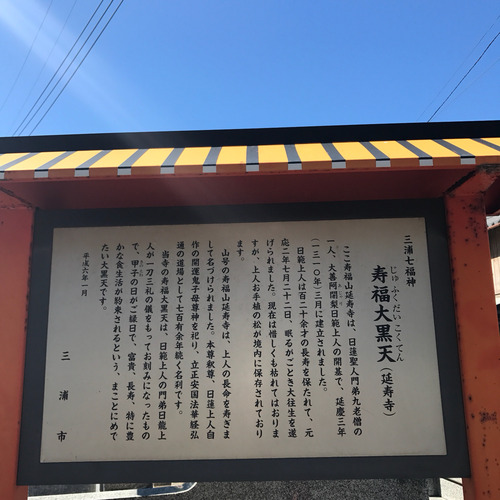 三浦七福神
寿福大黒天(延寿寺)
じゅふくだいこくてん
ここ寿福山延寿寺は、日蓮聖人門弟九老僧の
一人、大善阿闍梨日範上人の開基で、延慶三年
(一三一〇年)三月に建立されました。
日範上人は百二十余才の長寿を保たれて、元
応二年七月二十二日、眠るがごとき大往生を遂
げられました。現在は惜しくも枯れてはおりま
すが、上人お手植の松が境内に保存されており
ます。
山号の寿福山延寿寺は、上人の長命を寿ぎま
して名づけられました。本尊釈尊、日蓮上人自
作の開運鬼子母尊神を祀り、立正安国法華経弘
通の道場として七百有余年続く名刹です。
当寺の寿福大黒天は、日範上人の門弟日龍上
人が一刀三礼の儀をもってお刻みになったもの
で、甲子の日がご縁日で、富貴、長寿、特に豊
かな食生活が約束されるという、まことにめで
たい大黒天です。
平成六年一月
三浦市